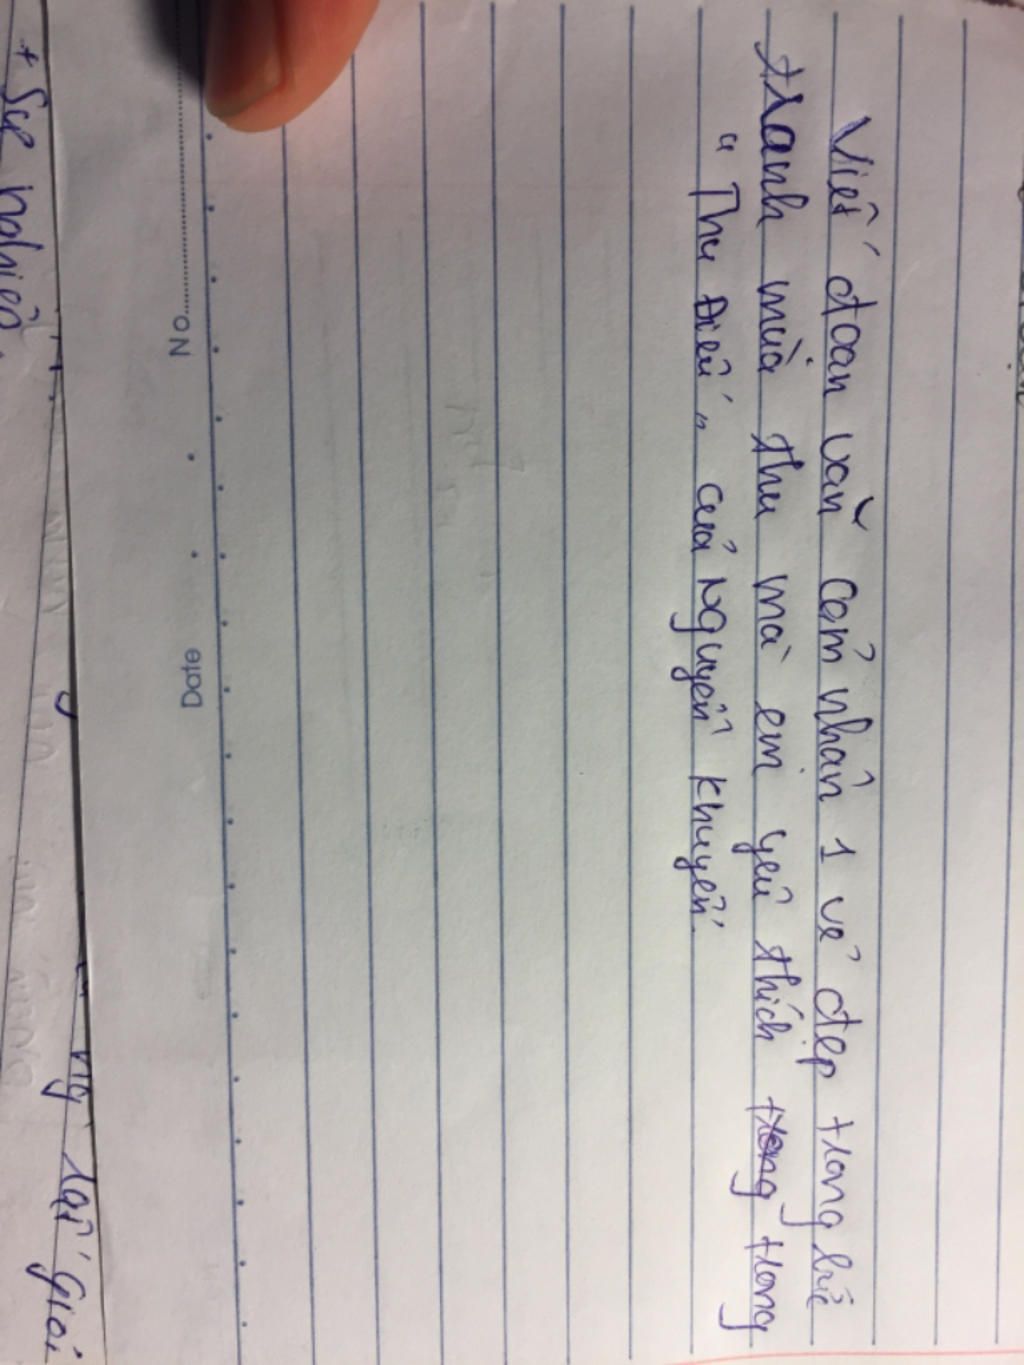 Viết đoạn văn cảm nhận 1 vẻ đẹp trong bức
tranh mùa thu mà em yêu thích trong trong
"Thu Điếu" của Nguyễn Khuyến.
No
Date
+ Sự nghiệp.
lại giỏi